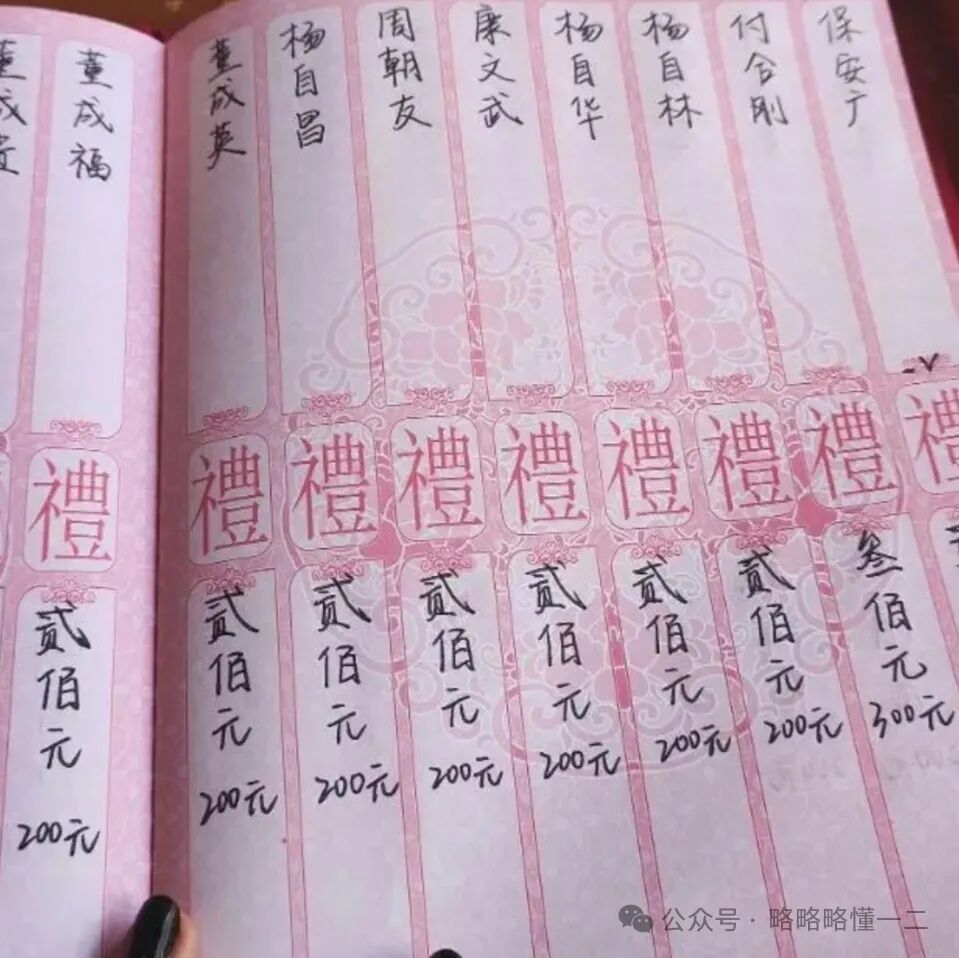 保安广
礼
付合刚
禮
叁佰元
300元
杨自林
禮
贰佰元
200元
杨自华
禮
贰佰元
200元
康文武
禮
贰佰元
200元
周朝友
禮
贰佰元
200元
杨自昌
禮
贰佰元
200元
董成英
禮
贰佰元
200元
董成福
禮
贰佰元
200元
董成贵
公众号·略略略懂一二